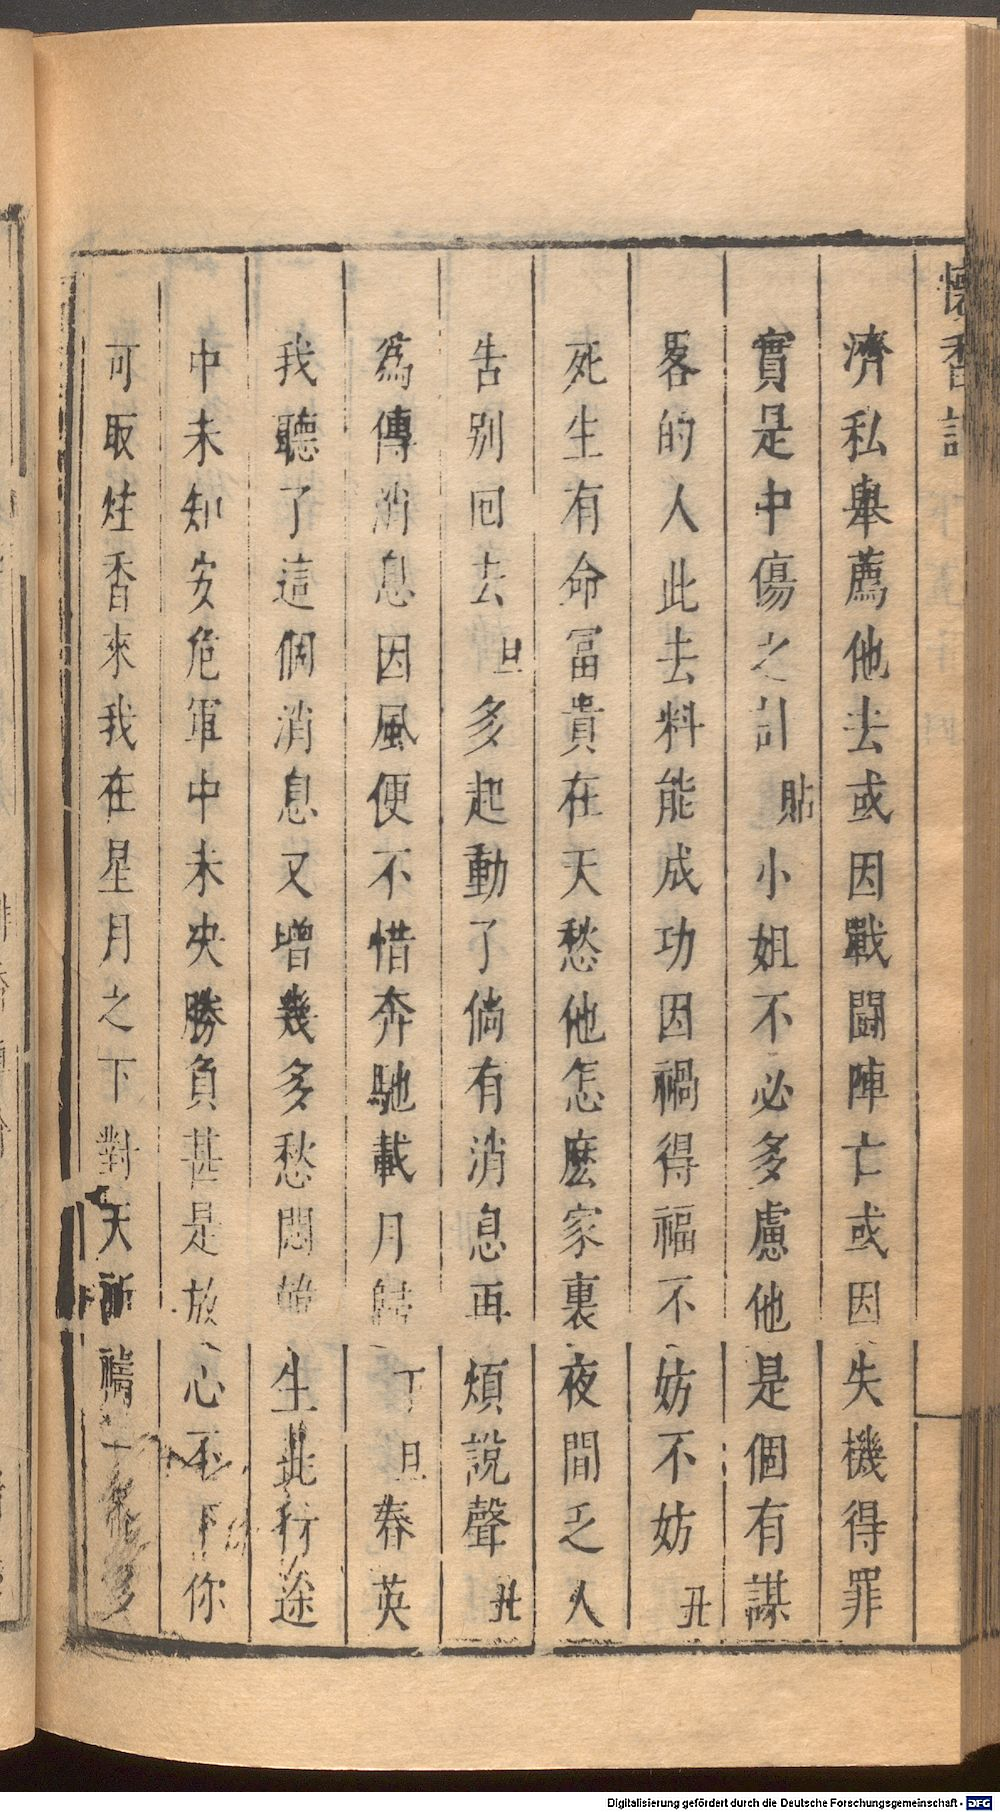 懷香記
濟私舉薦他去或因戰鬪陣亡或因失機得罪
實是中傷之計貼小姐不必多慮他是個有謀
畧的人此去料能成功因禍得福不妨不妨丑
死生有命冨貴在天愁他怎麽家裏夜間乏人
告别囘去旦多起動了倘有消息再煩說聲丑
爲傳消息因風便不惜奔馳載月歸丁旦春英
我聽了這個消息又增幾多愁悶 生此行途
中未知安危軍中未决勝負甚是放心不下你
可取炷香來我在星月之下對天祈禱 多
Digitalisierung gefördert durch die Deutsche Forschungsgemeinschaft - DFG